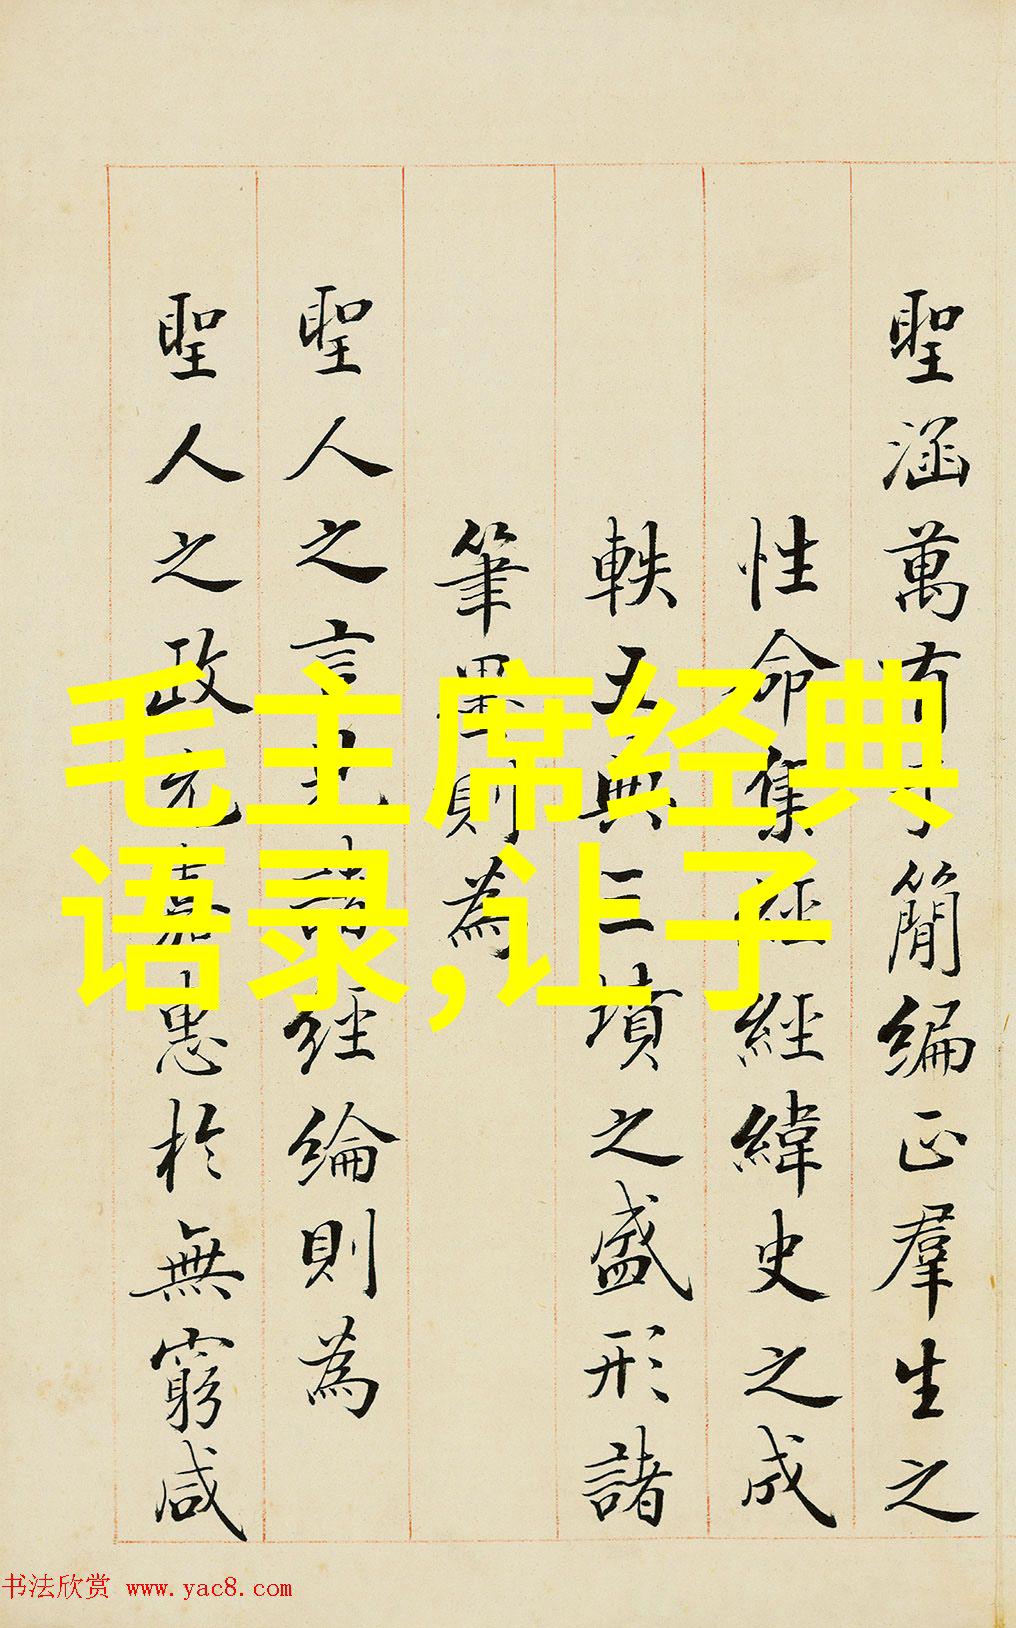 聖涵萬有于簡編正羣生之
性命集經經緯史之成
軼五典三墳之盛形諸
筆墨則為
聖人之言
經綸則為
聖人之政
惠於無窮咸
毛主席经典
语录,让子
书法欣赏 www.yac8.com